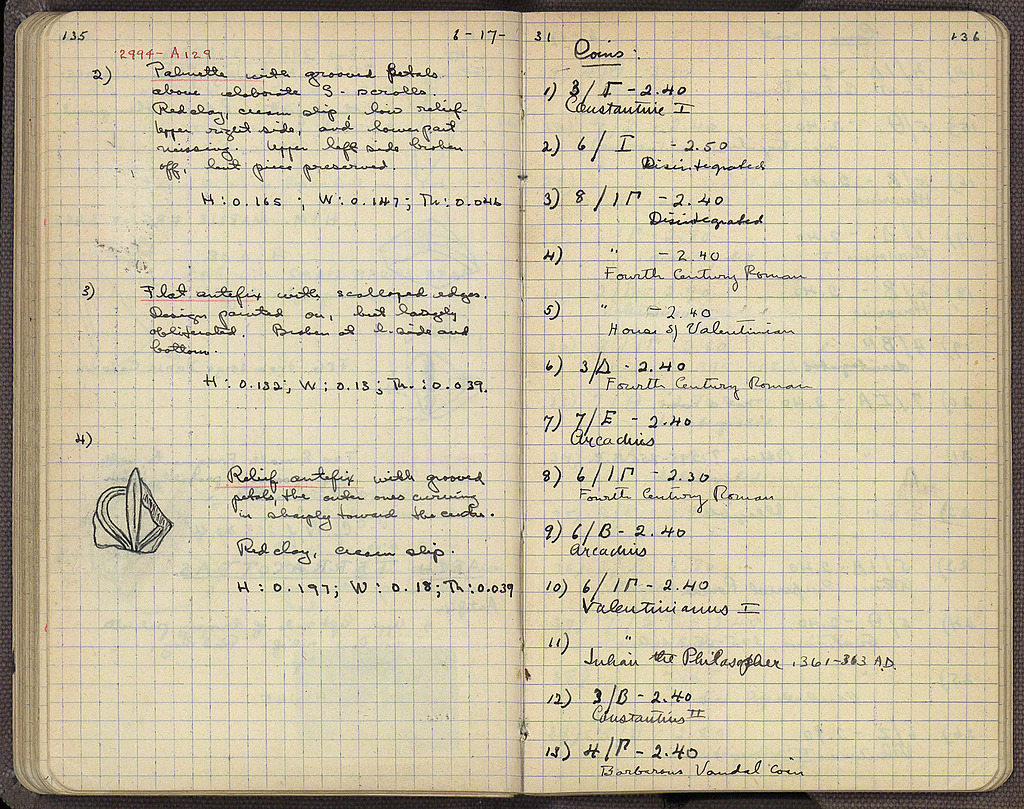 135
6-17-
2994-A129
2) Palmette with grooved petals
above elaborate S-scrolls.
Red clay, cream slip, low relief.
Upper right side, and lower part
missing. Upper left side broken
off, but piece preserved.
H: 0.165 ; W: 0.147; Th: 0.046
3) Flat antefix with scalloped edges.
Design painted on, but largely
obliterated. Broken at l. side and
bottom.
H: 0.132; W: 0.13; Th.: 0.039.
4)
Relief antefix with grooved
petals, the outer ones curving
in sharply toward the center.
Red clay, cream slip.
H: 0.197; W: 0.18; Th: 0.039
31
136
Coins:
1) 3/Γ - 2.40
Constantine I
2) 6/I - 2.50
Disintegrated
3) 8/ΙΓ - 2.40
Disintegrated
4) " - 2.40
Fourth Century Roman
5) " - 2.40
House of Valentinian
6) 3/Δ - 2.40
Fourth Century Roman
7) 7/E - 2.40
Arcadius
8) 6/ΙΓ - 2.30
Fourth Century Roman
9) 6/B - 2.40
Arcadius
10) 6/ΙΓ - 2.40
Valentinianus I
11) "
Julian the Philosopher, 361-363 A.D.
12) 3/B - 2.40
Constantius II
13) 4/Γ - 2.40
Barbarous Vandal Coin